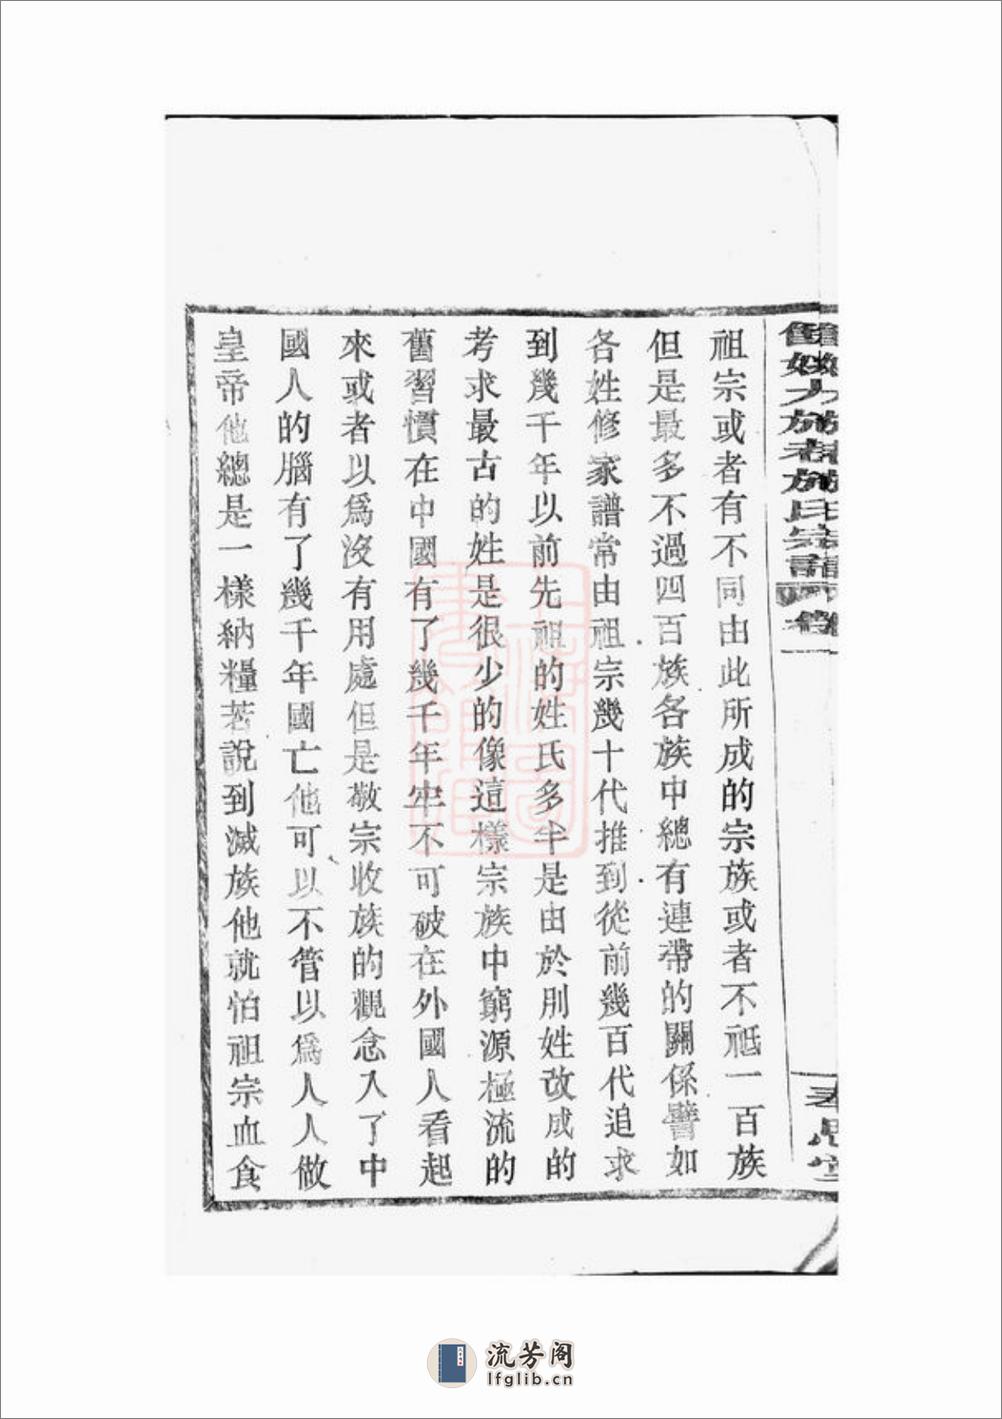 祖宗或者有不同由此所成的宗族或者不祗一百族
但是最多不過四百族各族中總有連帶的關係譬如
各姓修家譜常由祖宗幾十代推到從前幾百代追求
到幾千年以前先祖的姓氏多半是由於別姓改成的
考求最古的姓是很少的像這樣宗族中窮源極流的
舊習慣在中國有了幾千年牢不可破在外國人看起
來或者以爲沒有用處但是敬宗收族的觀念入了中
國人的腦有了幾千年國亡他可以不管以爲人人做
皇帝他總是一樣納糧若說到滅族他就怕祖宗血食
流芳阁
lfglib.cn